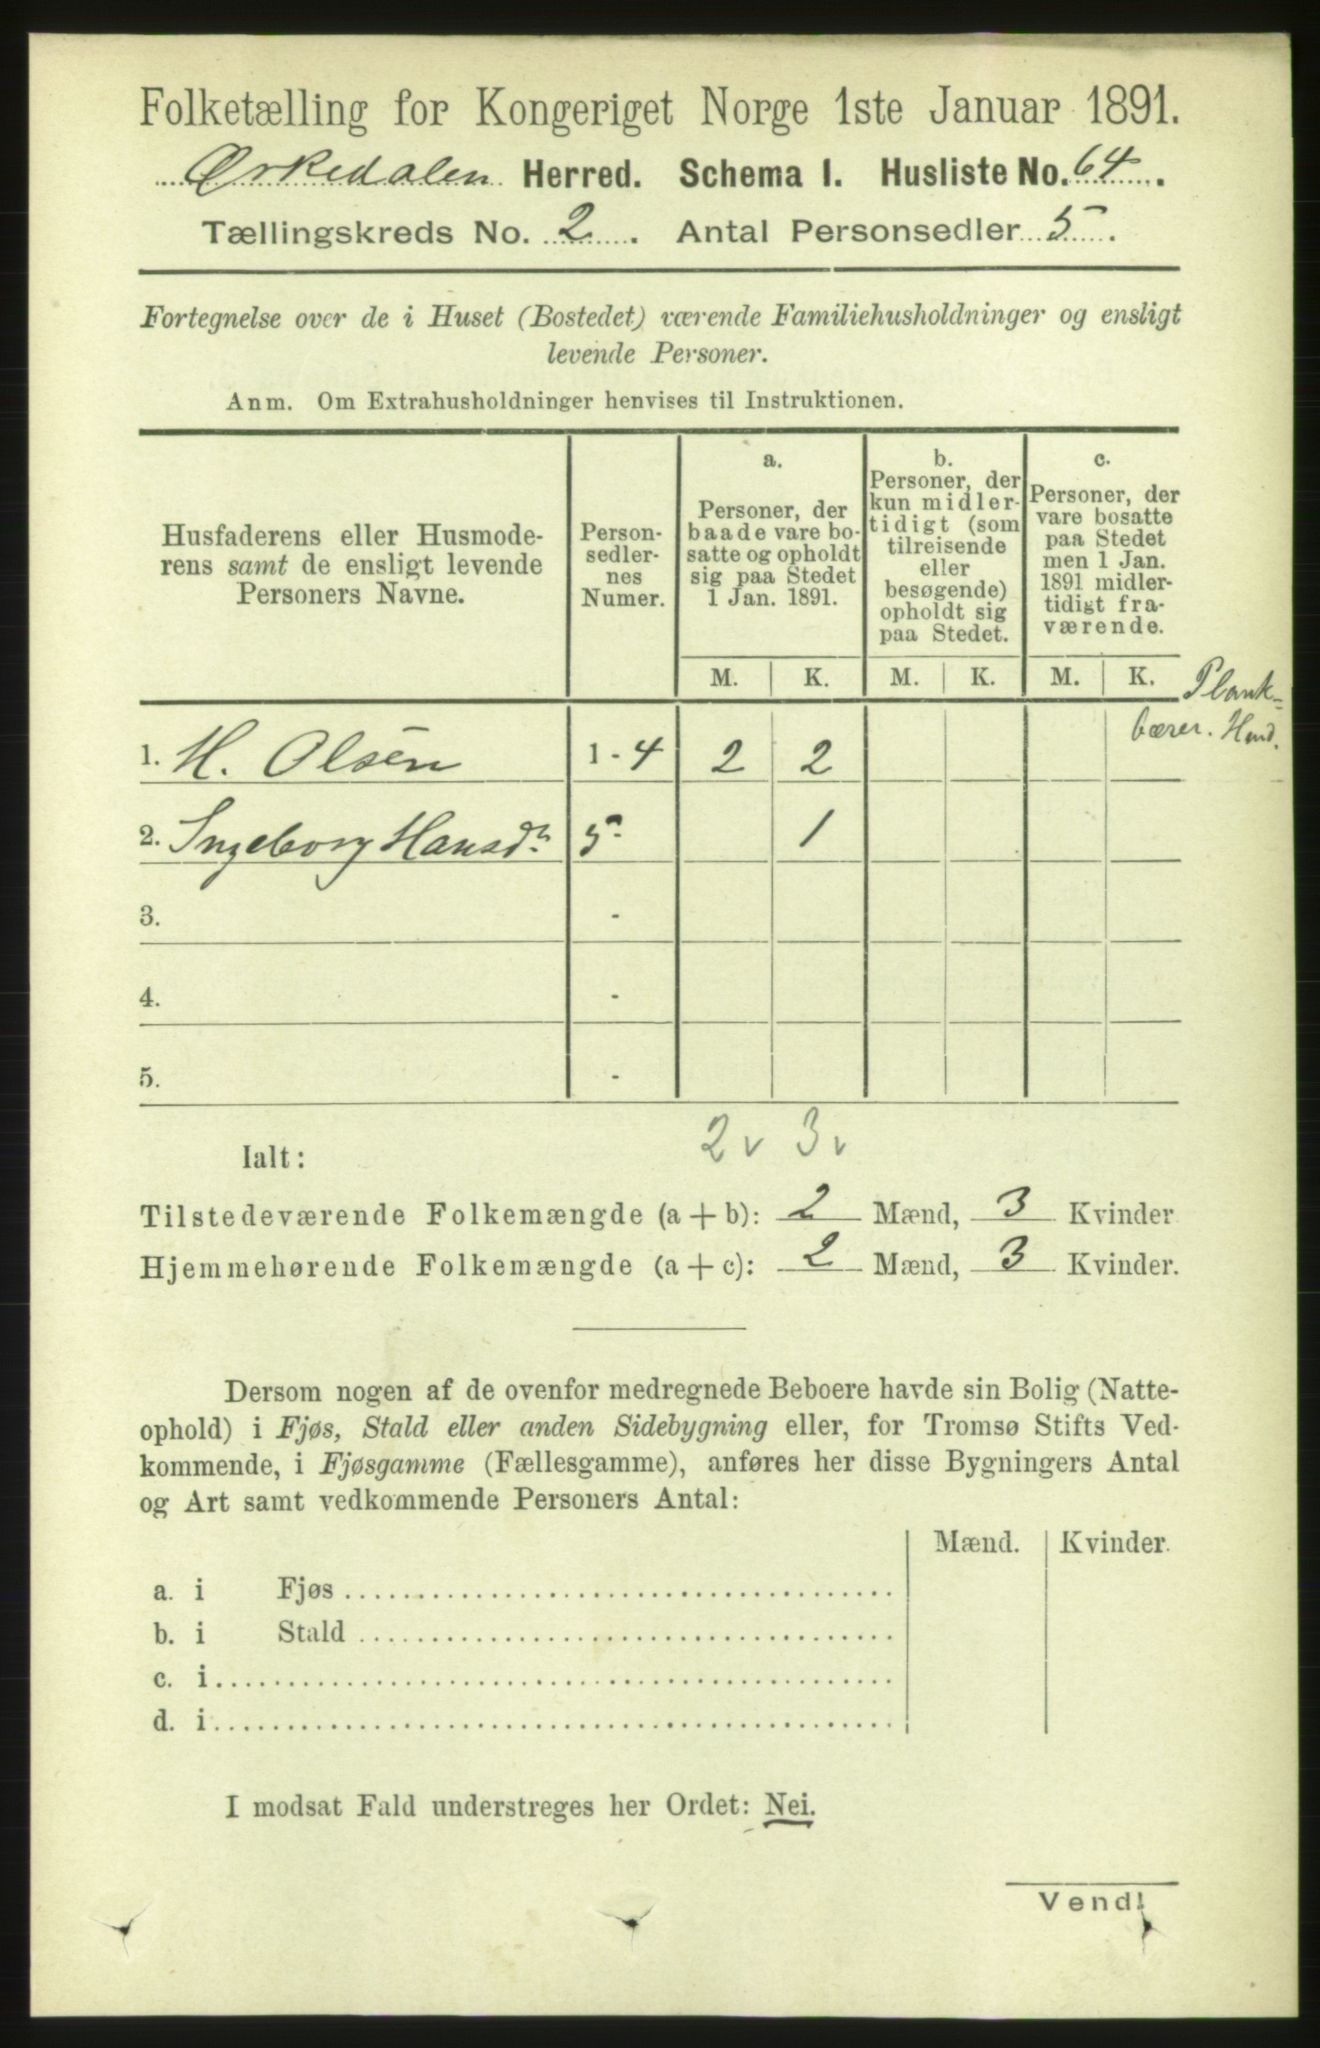 Folketælling for Kongeriget Norge 1ste Januar 1891.
Ørkedalen Herred. Schema I. Husliste No. 64.
Tællingskreds No. 2. Antal Personsedler 5.
Fortegnelse over de i Huset (Bostedet) værende Familiehusholdninger og ensligt
levende Personer.
Anm. Om Extrahusholdninger henvises til Instruktionen.
Husfaderens eller Husmode-
rens samt de ensligt levende
Personers Navne.
Person-
sedler-
nes
Numer.
a.
Personer, der
baade vare bo-
satte og opholdt
sig paa Stedet
1 Jan. 1891.
b.
Personer, der
kun midler-
tidigt (som
tilreisende
eller
besøgende)
opholdt sig
paa Stedet.
c.
Personer, der
vare bosatte
paa Stedet
men 1 Jan.
1891 midler-
tidigt fra-
værende.
M. K. M. K. M. K.
Plank-
bærer. Husd.
1. H. Olsen 1-4 2 2
2. Ingeborg Hansdt. 5 1
3. -
4. -
5. -
Ialt: 2 v 3 v
Tilstedeværende Folkemængde (a + b): 2 Mænd, 3 Kvinder
Hjemmehørende Folkemængde (a + c): 2 Mænd, 3 Kvinder.
Dersom nogen af de ovenfor medregnede Beboere havde sin Bolig (Natte-
ophold) i Fjøs, Stald eller anden Sidebygning eller, for Tromsø Stifts Ved-
kommende, i Fjøsgamme (Fællesgamme), anføres her disse Bygningers Antal
og Art samt vedkommende Personers Antal:
Mænd. Kvinder.
a. i Fjøs
b. i Stald
c. i
d. i
I modsat Fald understreges her Ordet: Nei.
Vend!